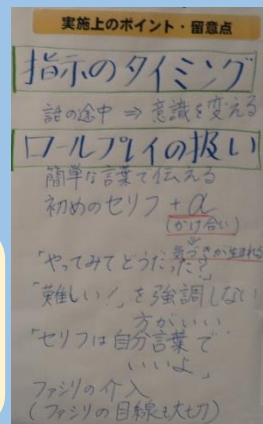 実施上のポイント・留意点
指示のタイミング
話の途中 ⇒ 意識を変える
ロールプレイの扱い
簡単な言葉で伝える
初めのセリフ + α
(かけ合い)
気づきが生まれる
「やってみてどうだった?」
「難しい!」を強調しない
方がいい
「セリフは自分言葉で
いいよ」
ファシリの介入
(ファシリの目線も大切)